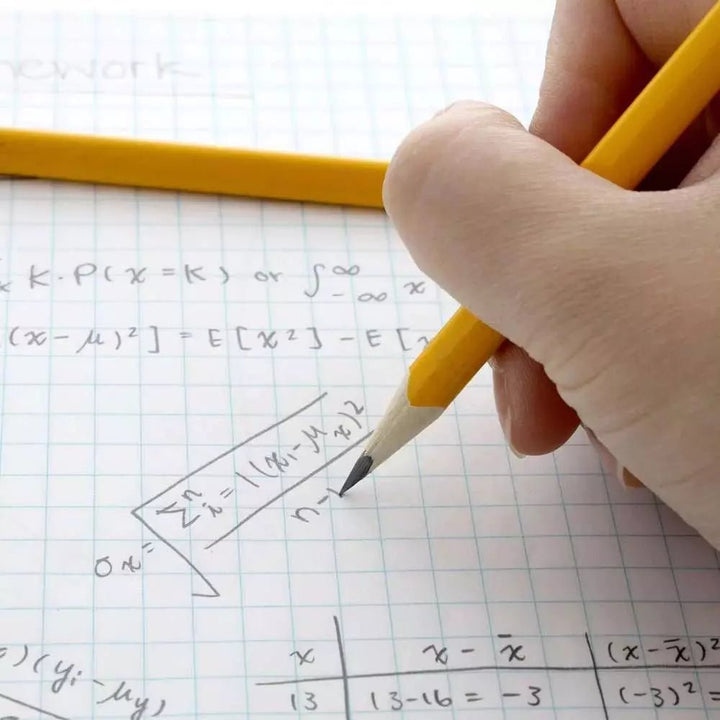 K · P(x = K) or ∫ ∞ -∞ x
(x - μ)²] = E[x²] - E[
σx = √ Σ n i = 1 (xi - μx)²
n - 1
)(yi - μy)
x | x - x̄ | (x - x̄)²
13 | 13 - 16 = -3 | (-3)² =